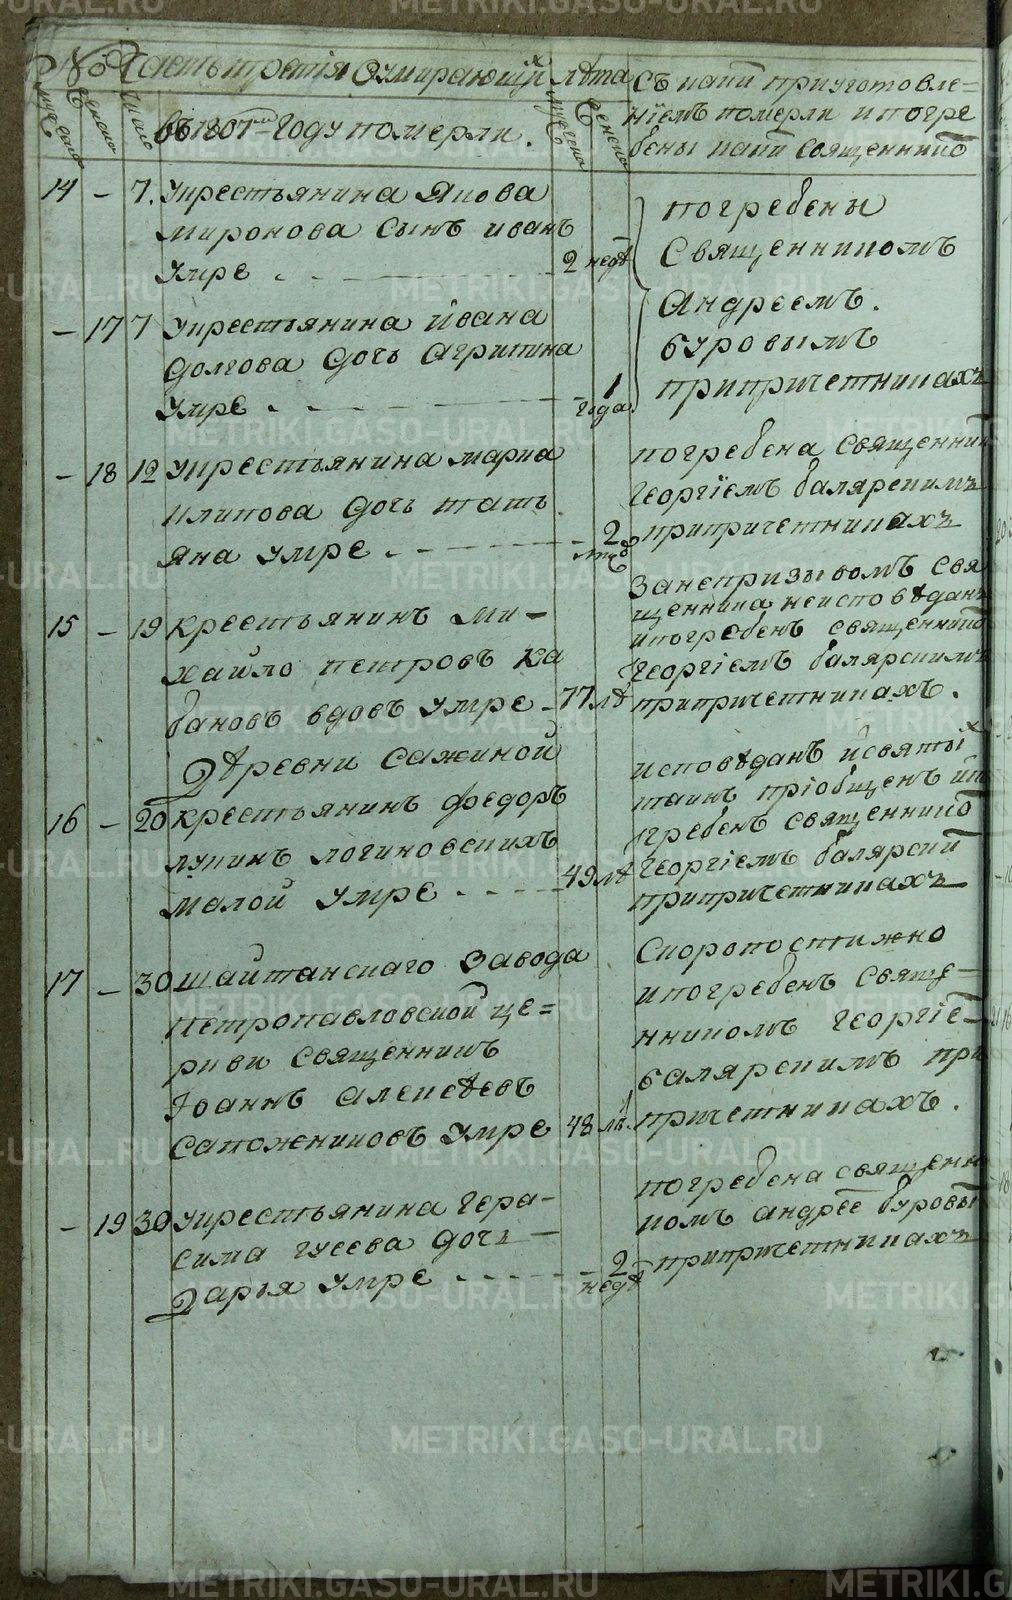 METRIKI.GASO-URAL.RU
№ Часть третія Оумирающихъ
въ 801мъ Году померли.
Мужеска
Женска
Число
лѣта
Мужеска
Женска
съ каки приуготовле=
ніемъ померли и погре
бены каки священникo
14 - 7. У крестьянина Якова
Миронова сынъ иванъ
умре - 2 недѣ
погребены
Священникомъ
Андреемъ.
буровымъ
при причетникахъ
- 17 7 У крестьянина Ивана
Долгова Дочь Агрипина
умре - 1
года
- 18 12 У крестьянина марка
Дочь тать
яна умре - 2
погребена Священник
Георгіемъ балярскимъ
при причетникахъ
15 - 19 крестьянинъ Ми-
хаило петровъ Ка
бановъ вдовъ умре - 77 лѣ
За непризывомъ свя
щенника неисповѣданъ
и погребенъ священнико
Георгіемъ балярскимъ
при причетникахъ.
Деревни сажиной
16 - 20 крестьянинъ федоръ
лукинъ логиновскихъ
малой умре - 49 лѣ
исповѣданъ и святыхъ
таинъ пріобщенъ и по
гребенъ священнико
Георгіемъ балярский
при причетникахъ
17 - 30 шайтанскаго завода
Петропавловской це=
ркви священникъ
Іоаннъ алексѣевъ
сапожниковъ умре 48 лѣ.
Скоропостижно
и погребенъ Свяще-
нникомъ Георгіе-
балярскимъ при
причетникахъ.
- 19 30 У крестьянина Гера-
сима гусева дочь -
Дарья умре - 2
недѣ
погребена священни
комъ андрее буровы
при причетникахъ